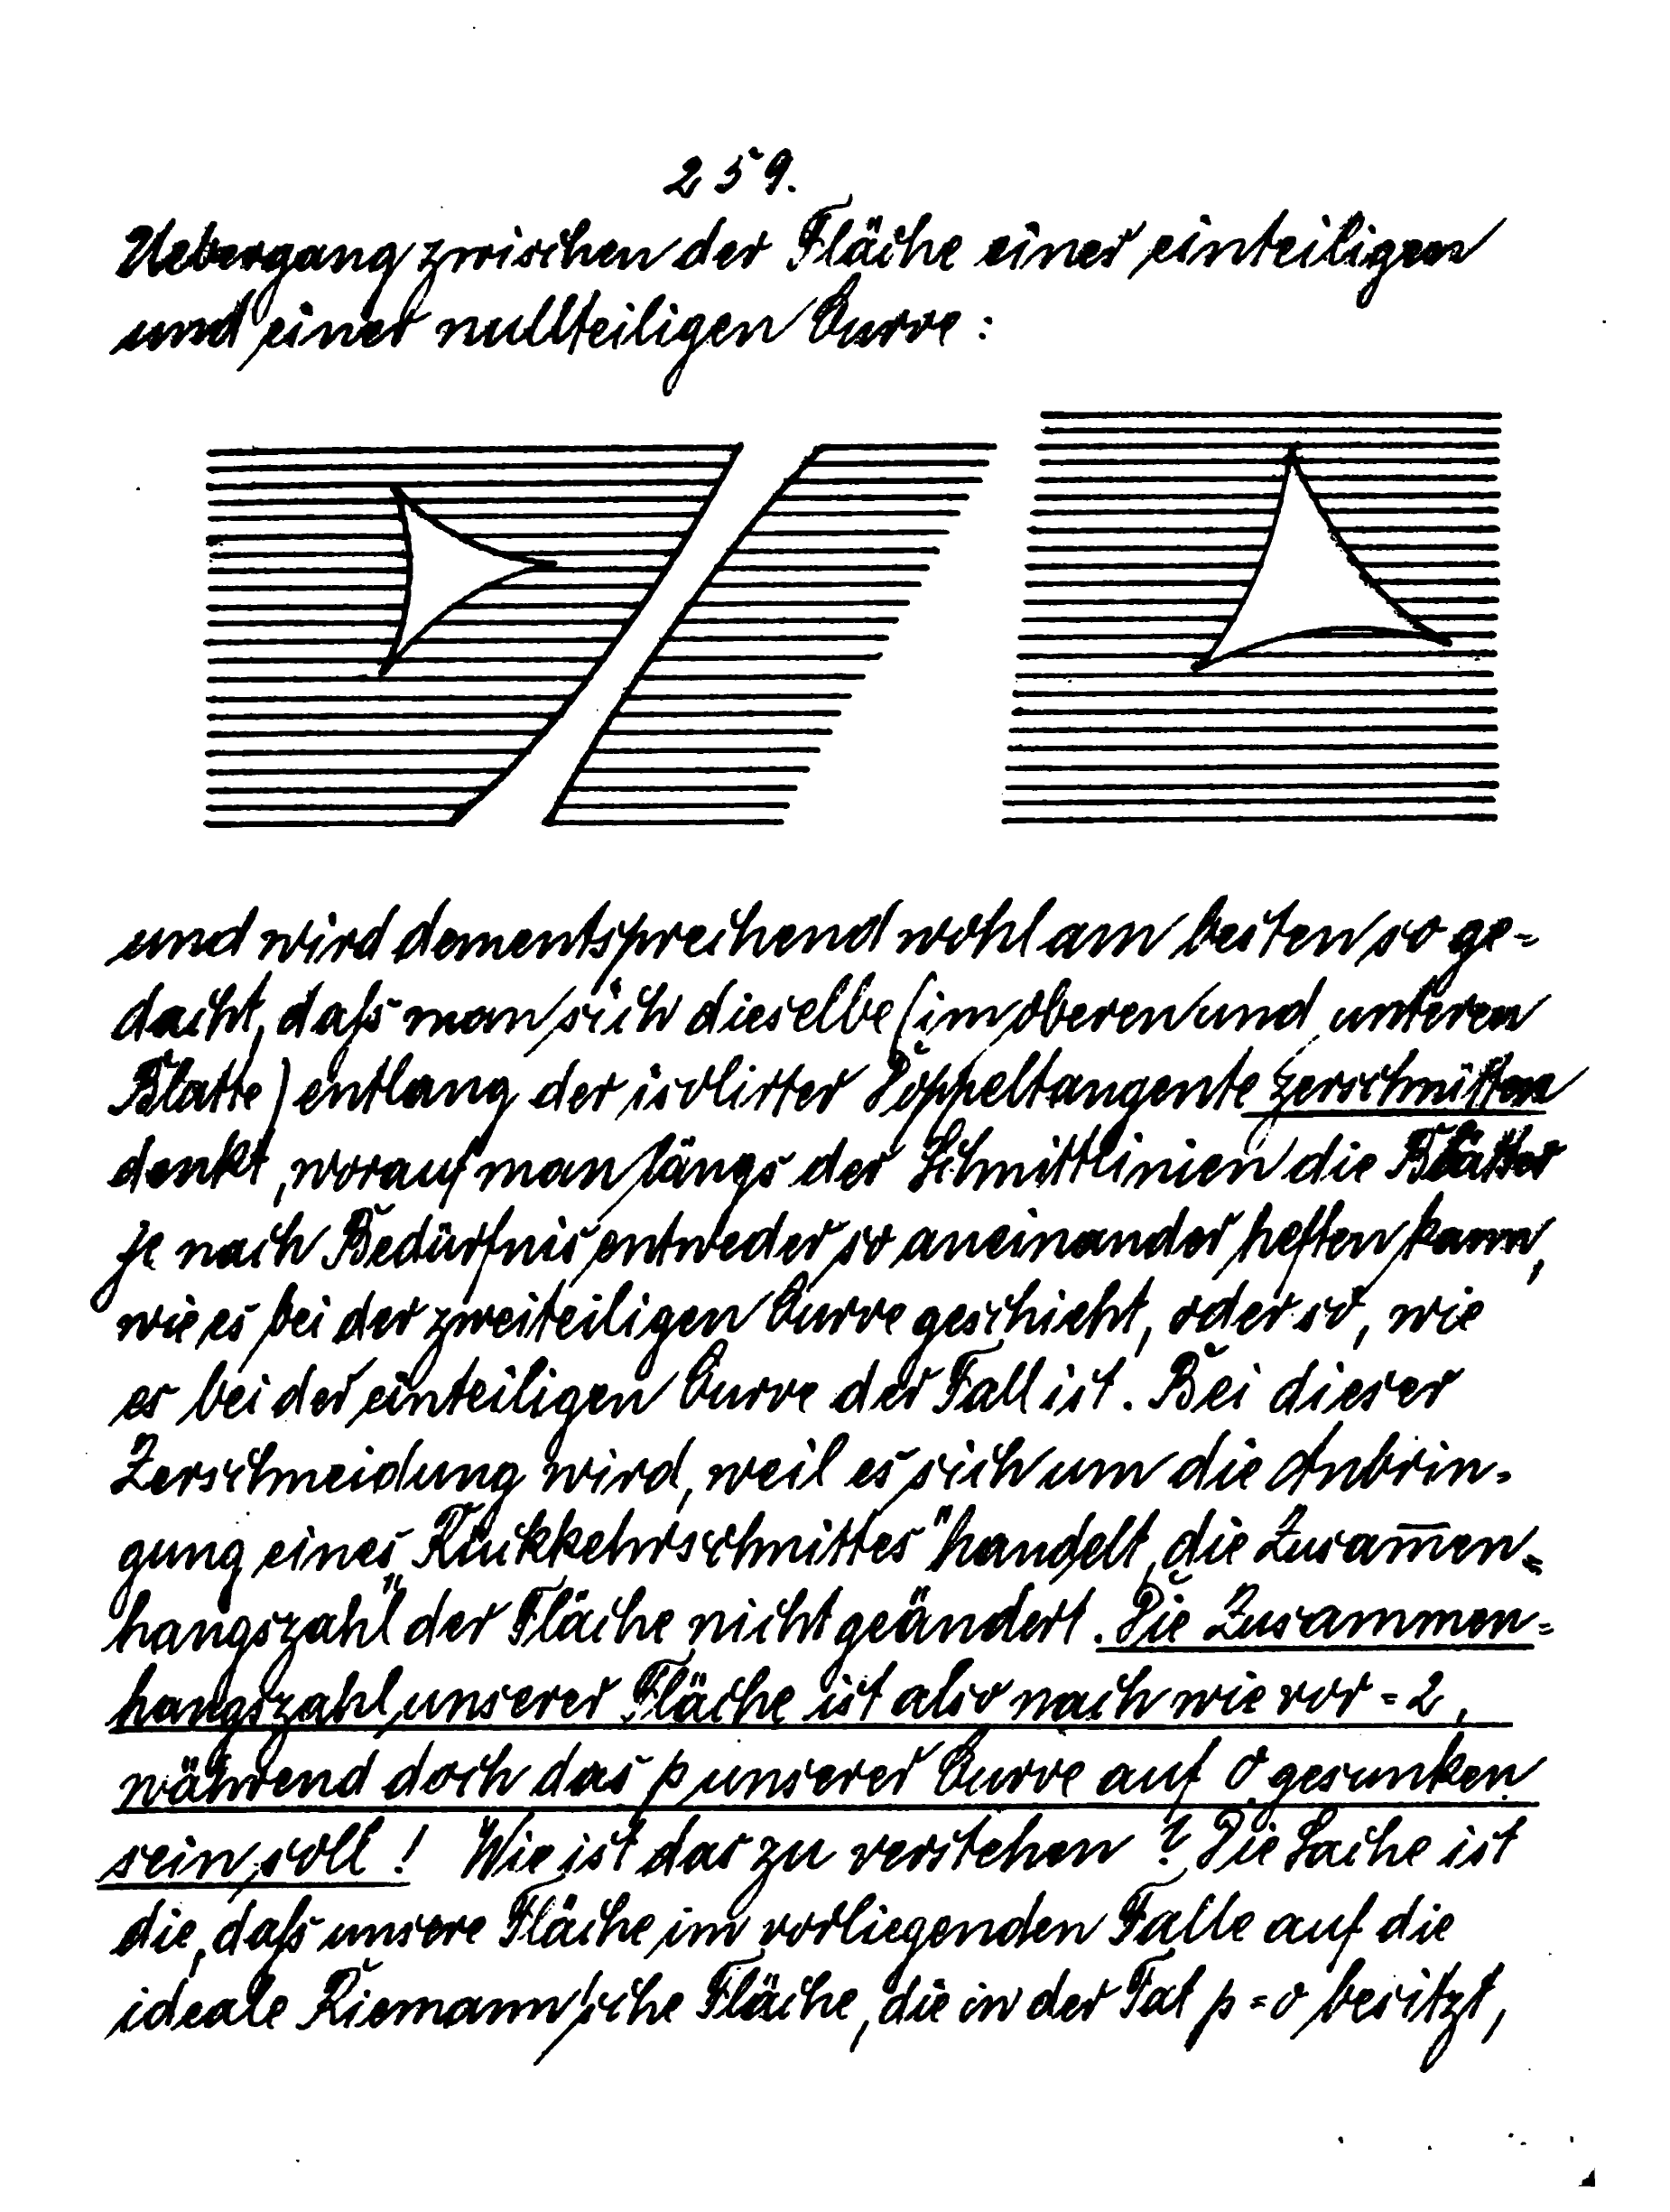 259.
Uebergang zwischen der Fläche einer einteiligen
und einer nullteiligen Curve:
und wird dementsprechend wohl am besten so ge-
dacht, daſs man sich dieselbe (im oberen und unteren
Blatte) entlang der isolirter Doppeltangente zerschnitten
denkt, worauf man längs der Schnittlinien die Blätter
je nach Bedürfnis entweder so aneinander heften kann,
wie es bei der zweiteiligen Curve geschieht, oder so, wie
es bei der einteiligen Curve der Fall ist. Bei dieser
Zerschneidung wird, weil es sich um die Anbrin-
gung eines „Rückkehrschnittes" handelt, die Zusam̅en-
hangszahl der Fläche nicht geändert. Die Zusammen-
hangszahl unserer Fläche ist also nach wie vor = 2,
während doch das p unserer Curve auf 0 gesunken
sein soll! Wie ist das zu verstehen? Die Sache ist
die, daſs unsere Fläche im vorliegenden Falle auf die
ideale Riemann'sche Fläche, die in der Tat p = 0 besitzt,